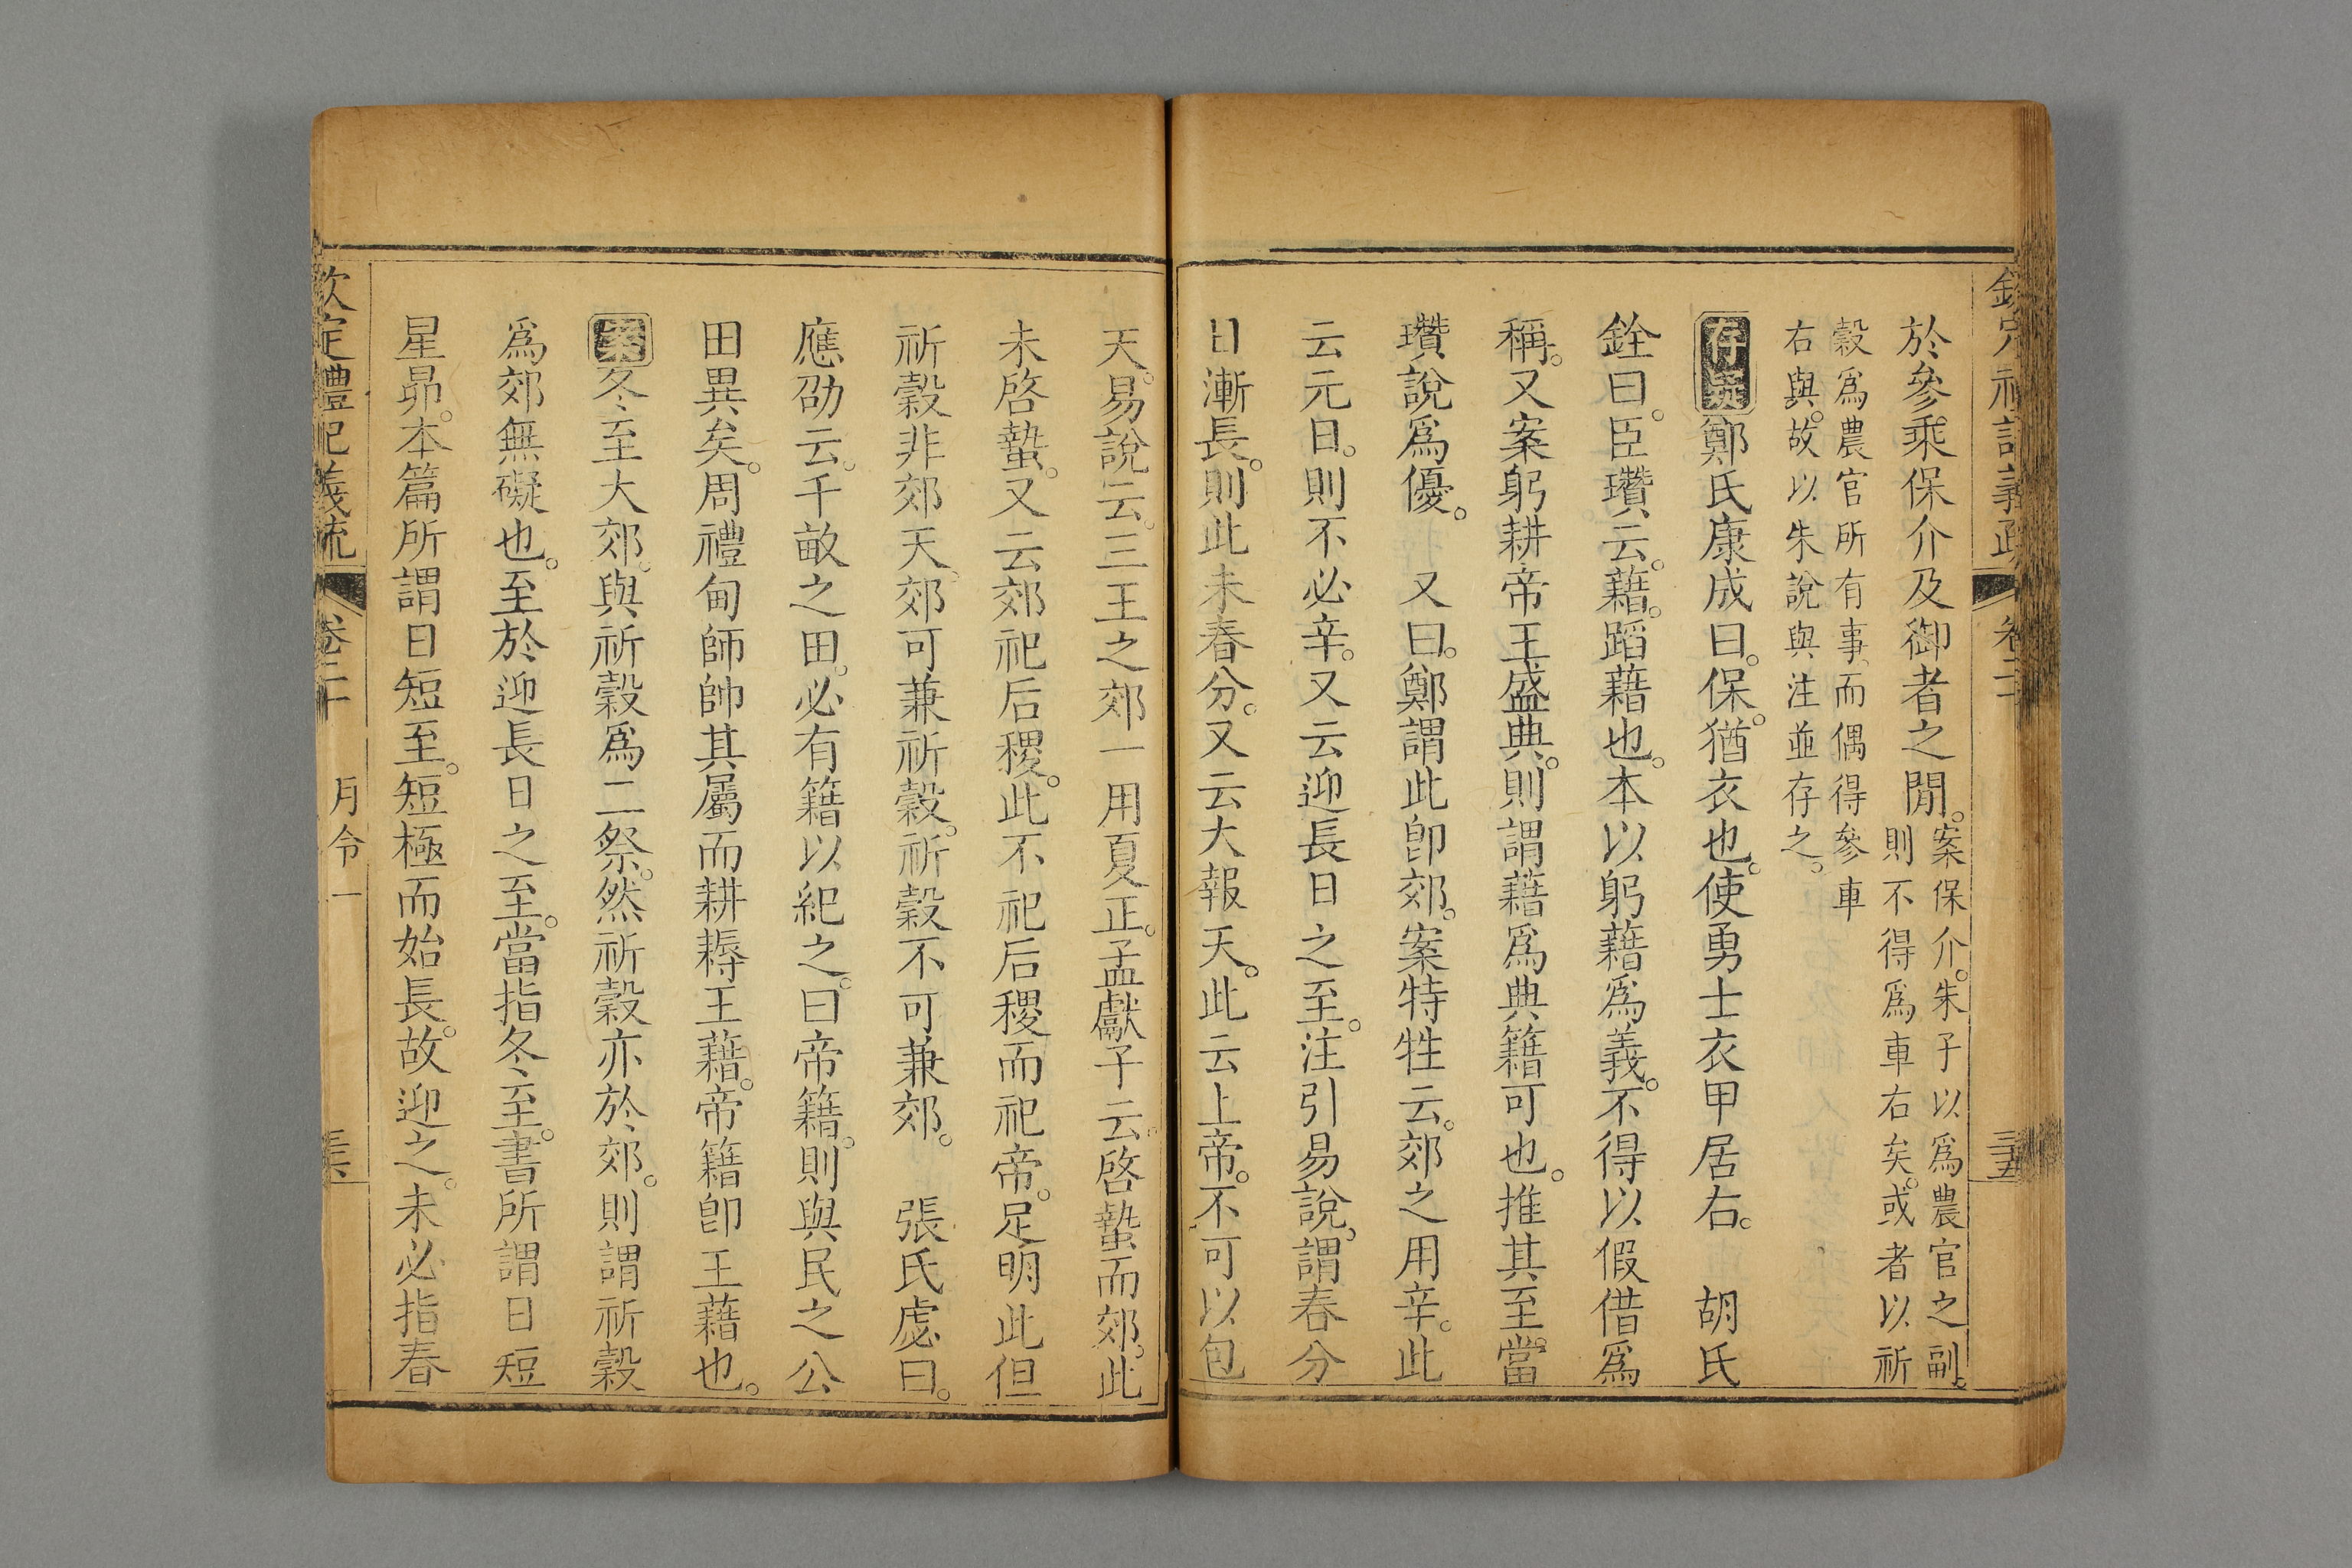 欽定禮記義疏 卷二十 三五
於參乘保介及御者之閒。案保介。朱子以爲農官之副。
則不得爲車右矣。或者以祈
穀爲農官所有事、而偶得參車
右與。故以朱說與注並存之。
存異鄭氏康成曰。保。猶衣也。使勇士衣甲居右。 胡氏
銓曰。臣瓚云。藉。蹈藉也。本以躬藉爲義。不得以假借爲
稱。又案躬耕帝王盛典。則謂藉爲典籍可也。推其至當。
瓚說爲優。 又曰。鄭謂此卽郊。案特牲云。郊之用辛。此
云元日。則不必辛。又云迎長日之至。注引易說、謂春分
日漸長。則此未春分。又云大報天。此云上帝。不可以包
天。易說云。三王之郊一用夏正。孟獻子云。啓蟄而郊。此
未啓蟄。又云郊祀后稷。此不祀后稷而祀帝。足明此但
祈穀非郊天。郊可兼祈穀。祈穀不可兼郊。 張氏虙曰。
應劭云。千畝之田。必有籍以紀之。曰帝籍。則與民之公
田異矣。周禮甸師帥其屬而耕耨王藉。帝籍卽王藉也。
案冬至大郊。與祈穀爲二祭。然祈穀亦於郊。則謂祈穀
爲郊無礙也。至於迎長日之至。當指冬至。書所謂日短
星昴。本篇所謂日短至。短極而始長。故迎之。未必指春
欽定禮記義疏 卷二十 月令一